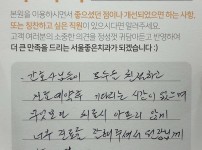 본원을 이용하시면서 좋으셨던 점이나 개선되었으면 하는 사항,
또는 칭찬하고 싶은 직원이 있으시다면 알려주세요.
고객 여러분의 소중한 의견을 정성껏 귀담아듣고 반영하여
더 큰 만족을 드리는 서울좋은치과가 되겠습니다 :)
간호사분들이 모두 친절하고
기다리는 시간이 없으며
치료시 아프지 않게
너무 진료를 잘해주셔서